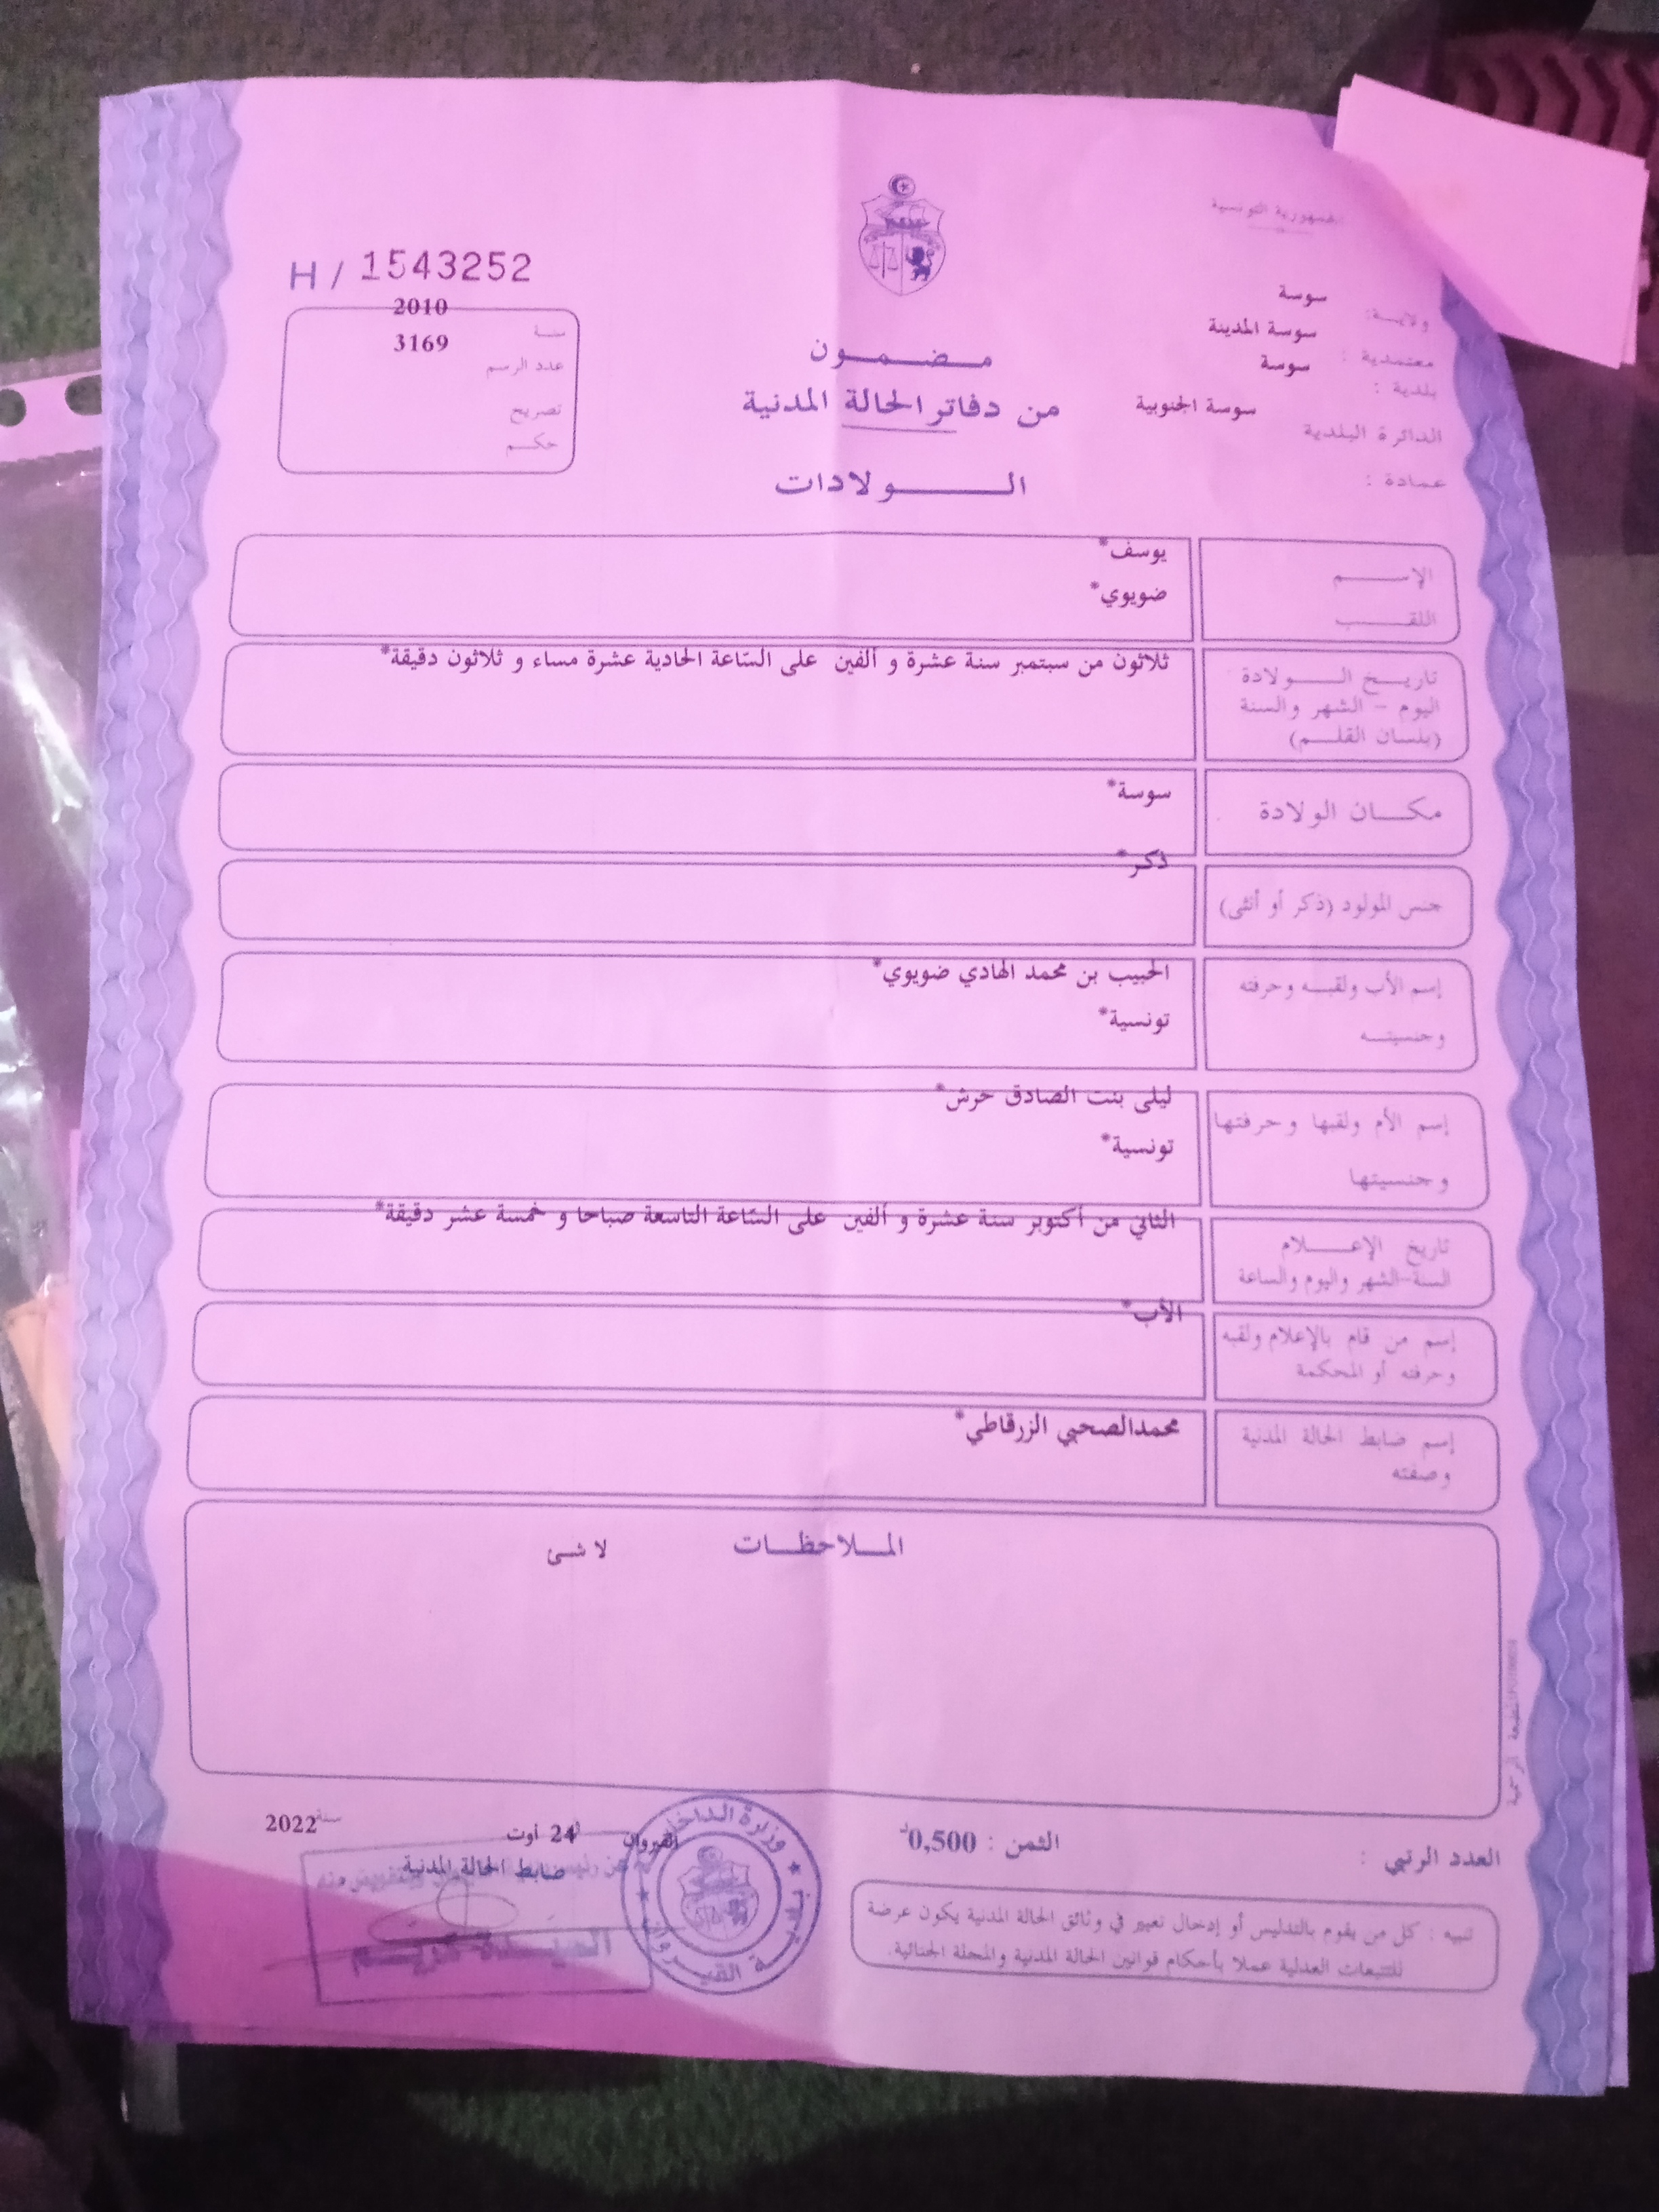 الجمهورية التونسية
ولاية: سوسة
معتمدية : سوسة المدينة
بلدية : سوسة
الدائرة البلدية سوسة الجنوبية
عمادة :
مضمون
من دفاتر الحالة المدنية
الولادات
H / 1543252
سنة 2010
عدد الرسم 3169
تصريح
حكم
الإسم يوسف*
اللقب ضويوي*
تاريخ الولادة ثلاثون من سبتمبر سنة عشرة و ألفين على السّاعة الحادية عشرة مساء و ثلاثون دقيقة*
اليوم - الشهر والسنة
(بلسان القلم)
مكان الولادة سوسة*
جنس المولود (ذكر أو أنثى) ذكر*
إسم الأب ولقبه وحرفته الحبيب بن محمد الهادي ضويوي*
وجنسيته تونسية*
إسم الأم ولقبها وحرفتها ليلى بنت الصادق حرش*
وجنسيتها تونسية*
تاريخ الإعلام الثاني من أكتوبر سنة عشرة و ألفين على السّاعة التاسعة صباحا و خمسة عشر دقيقة*
السنة-الشهر واليوم والساعة
إسم من قام بالإعلام ولقبه الأب*
وحرفته أو المحكمة
إسم ضابط الحالة المدنية محمدالصحبي الزرقاطي*
وصفته
الملاحظات لا شئ
المطبعة الرسمية
العدد الرتبي :
الثمن : 0,500د
القيروان 24 أوت سنة 2022
ضابط الحالة المدنية
وزارة الداخلية
بلدية القيروان
تنبيه : كل من يقوم بالتدليس أو إدخال تغيير في وثائق الحالة المدنية يكون عرضة
للتتبعات العدلية عملا بأحكام قوانين الحالة المدنية والمجلة الجنائية.